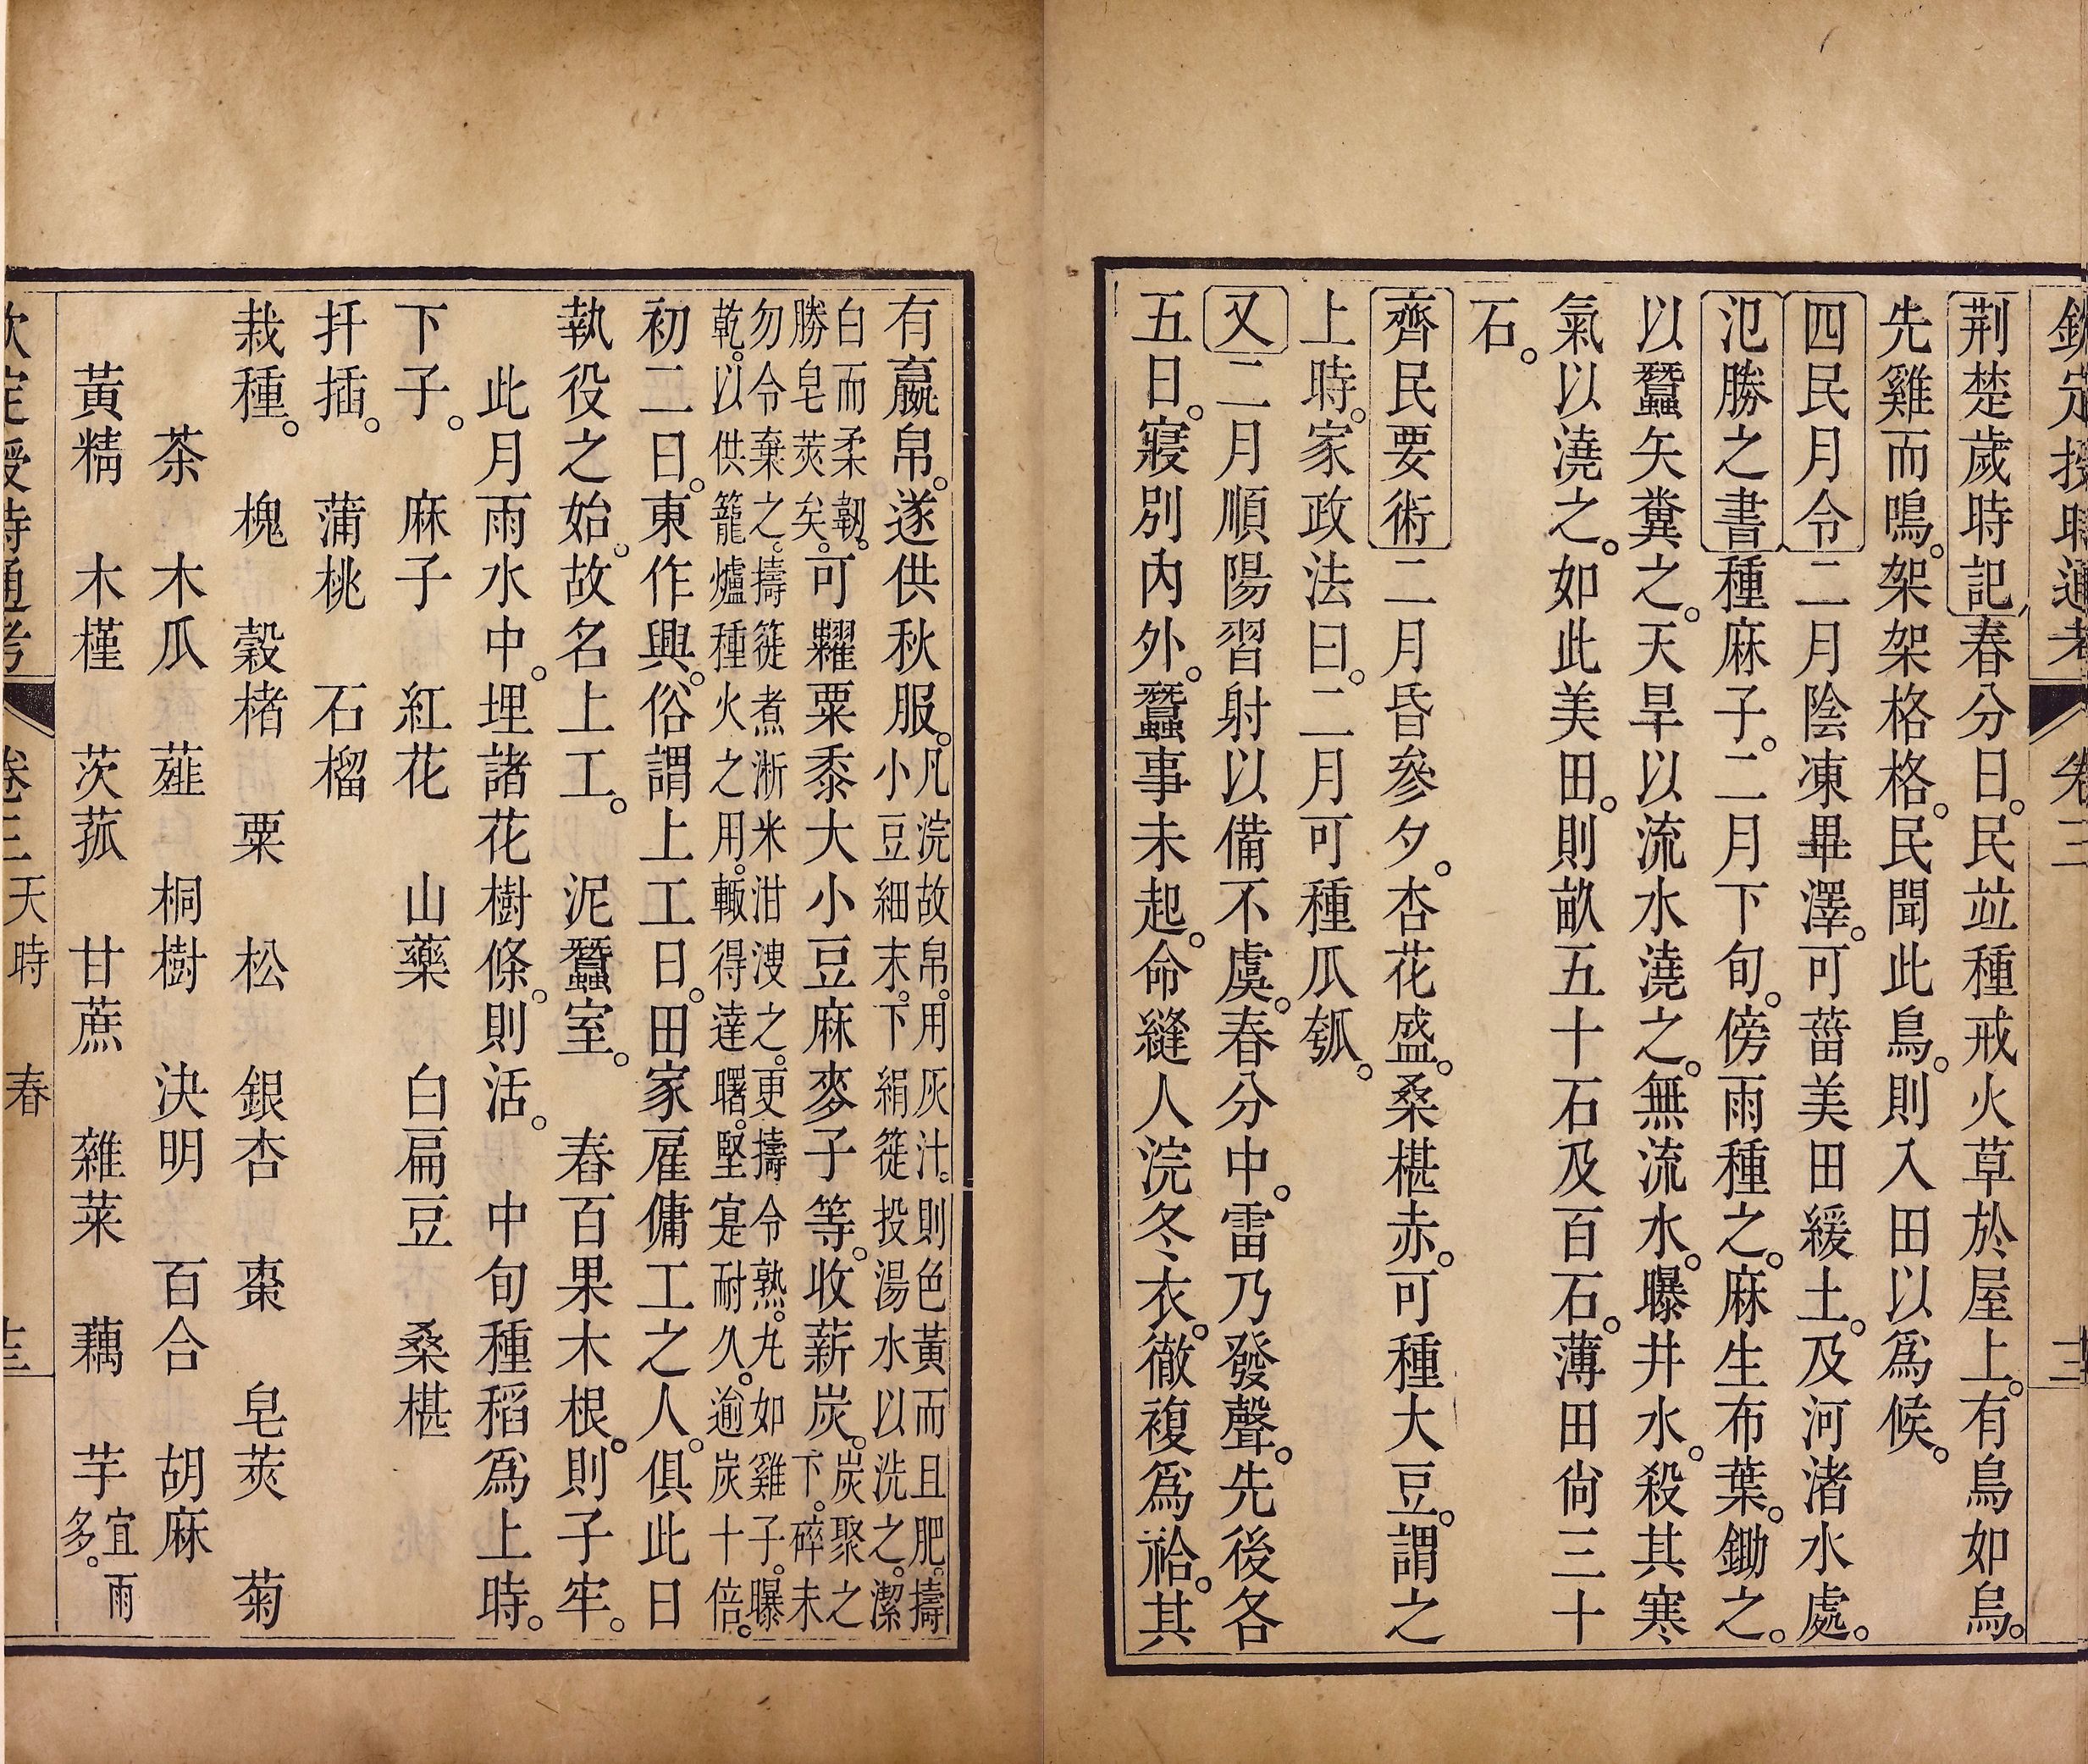 欽定授時通考 卷三
荆楚歲時記春分日。民竝種戒火草於屋上。有鳥如烏。
先雞而鳴。架架格格。民聞此鳥。則入田以爲候。
四民月令二月陰凍畢澤。可菑美田緩土。及河渚水處。
氾勝之書種麻子。二月下旬。傍雨種之。麻生布葉。鋤之。
以蠶矢糞之。天旱以流水澆之。無流水。曝井水。殺其寒
氣以澆之。如此美田。則畝五十石及百石。薄田尙三十
石。
齊民要術二月昏參夕。杏花盛。桑椹赤。可種大豆。謂之
上時。家政法曰。二月可種瓜瓠。
又二月順陽習射以備不虞。春分中。雷乃發聲。先後各
五日。寢別內外。蠶事未起。命縫人浣冬衣。徹複爲袷。其
有嬴帛。遂供秋服。凡浣故帛。用灰汁。則色黃而且肥。擣
小豆細末。下絹簁投湯水以洗之。潔
白而柔韌。
勝皂莢矣。可糶粟黍大小豆麻麥子等。收薪炭。炭聚之
下。碎末
勿令棄之。擣簁煮淅米泔溲之。更擣令熟。丸如雞子。曝
乾。以供籠爐種火之用。輙得達曙。堅寔耐久。逾炭十倍。
初二日。東作興。俗謂上工日。田家雇傭工之人。俱此日
執役之始。故名上工。 泥蠶室。 舂百果木根。則子牢。
此月雨水中。埋諸花樹條。則活。 中旬種稻爲上時。
下子。 麻子 紅花 山藥 白扁豆 桑椹
扦插。 蒲桃 石榴
栽種。 槐 穀楮 粟 松 銀杏 棗 皂莢 菊
茶 木瓜 薤 桐樹 決明 百合 胡麻
黃精 木槿 茨菰 甘蔗 雜菜 藕 芋宜雨
多。
欽定授時通考 卷三 天時 春